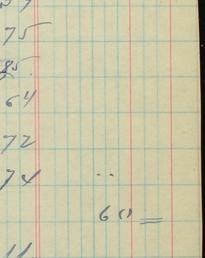 75
85
64
72
74 ..
60
11